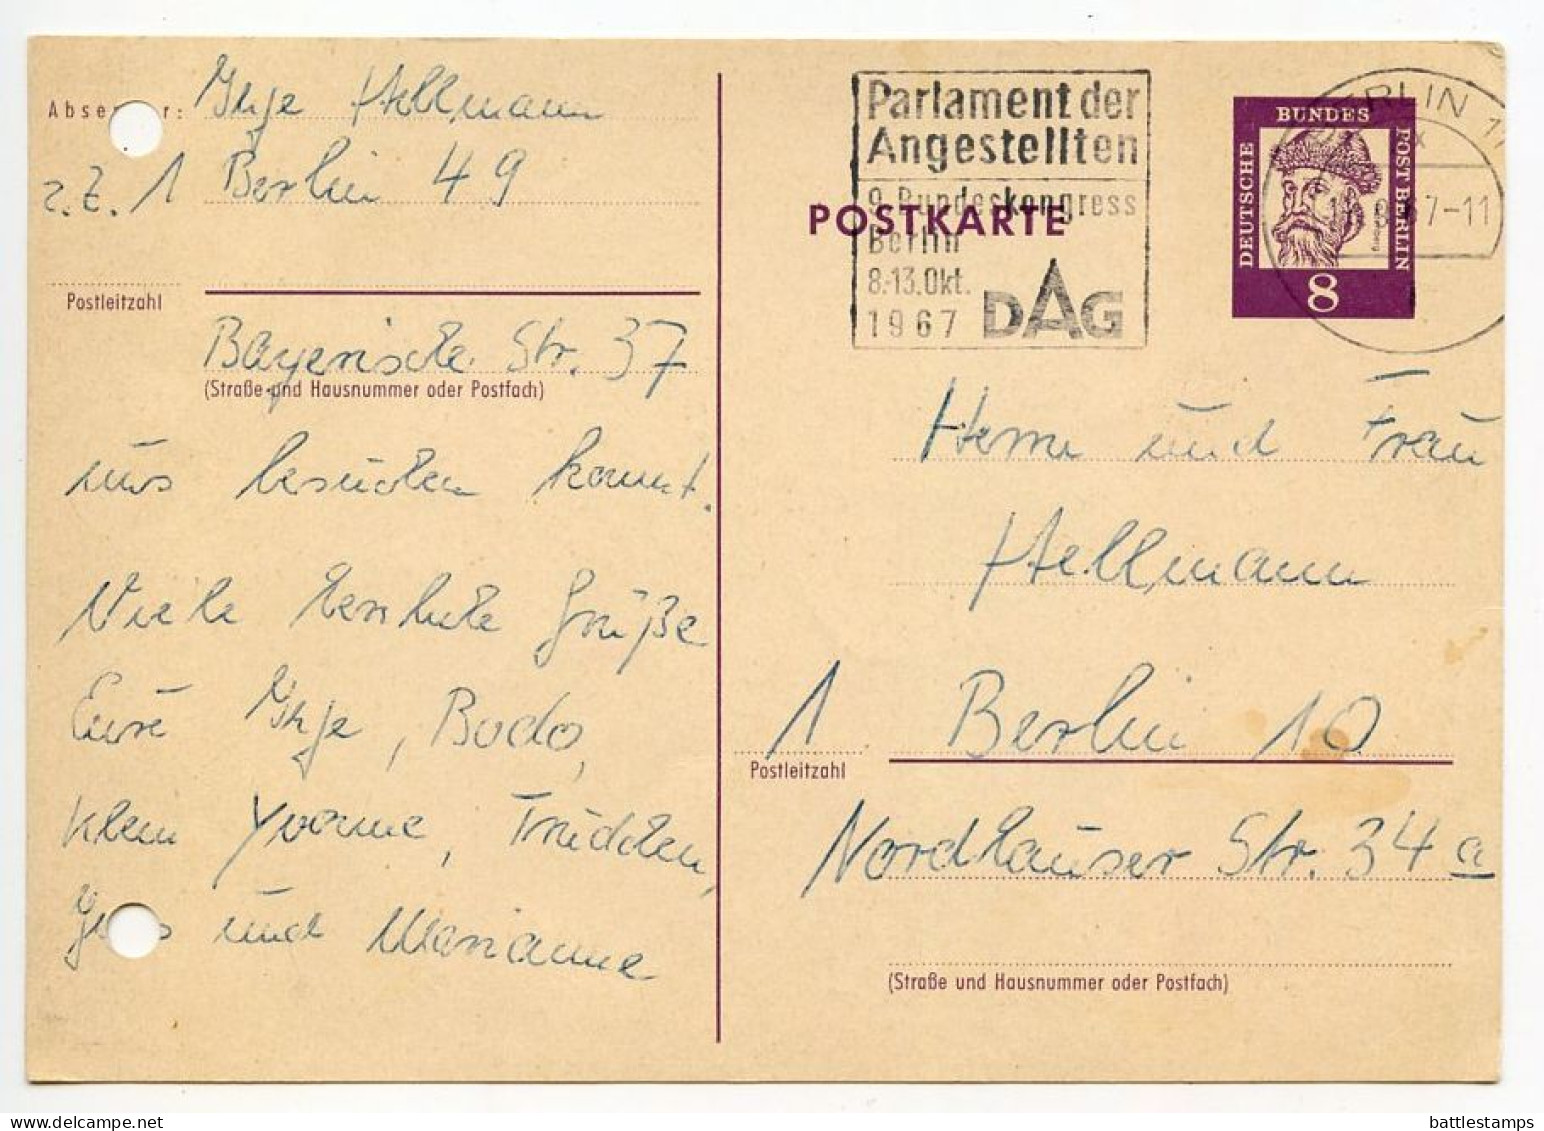 Absender: Inge Hellmann
z. Z. 1 Berlin 49
Postleitzahl
Bayerische Str. 37
(Straße und Hausnummer oder Postfach)
uns besuchen kommt.
Viele herzliche Grüße
Eure Inge, Bodo,
klein Yvonne, Trudchen,
und Marianne
Parlament der
Angestellten
9. Bundeskongress
Berlin
8.-13. Okt.
1967 DAG
POSTKARTE
DEUTSCHE
BUNDES
POST BERLIN
8
BERLIN 11
7-11
Herrn und Frau
Hellmann
1 Berlin 10
Postleitzahl
Nordhauser Str. 34a
(Straße und Hausnummer oder Postfach)
battlestamps